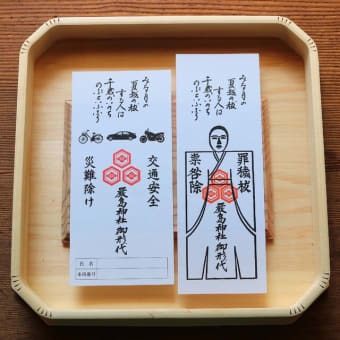 みな月の
夏越の祓
する人は
千歳のいのち
のぶといふなり
罪穢祓
嚴島神社 御形代
祟咎除
みな月の
夏越の祓
する人は
千歳のいのち
のぶといふなり
交通安全
嚴島神社 御形代
災難除け
氏名
車両番号